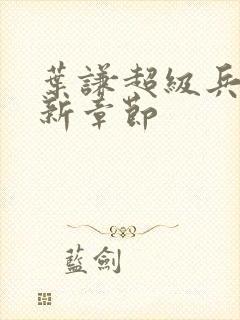 葉謙超級兵
新章節
藍劍